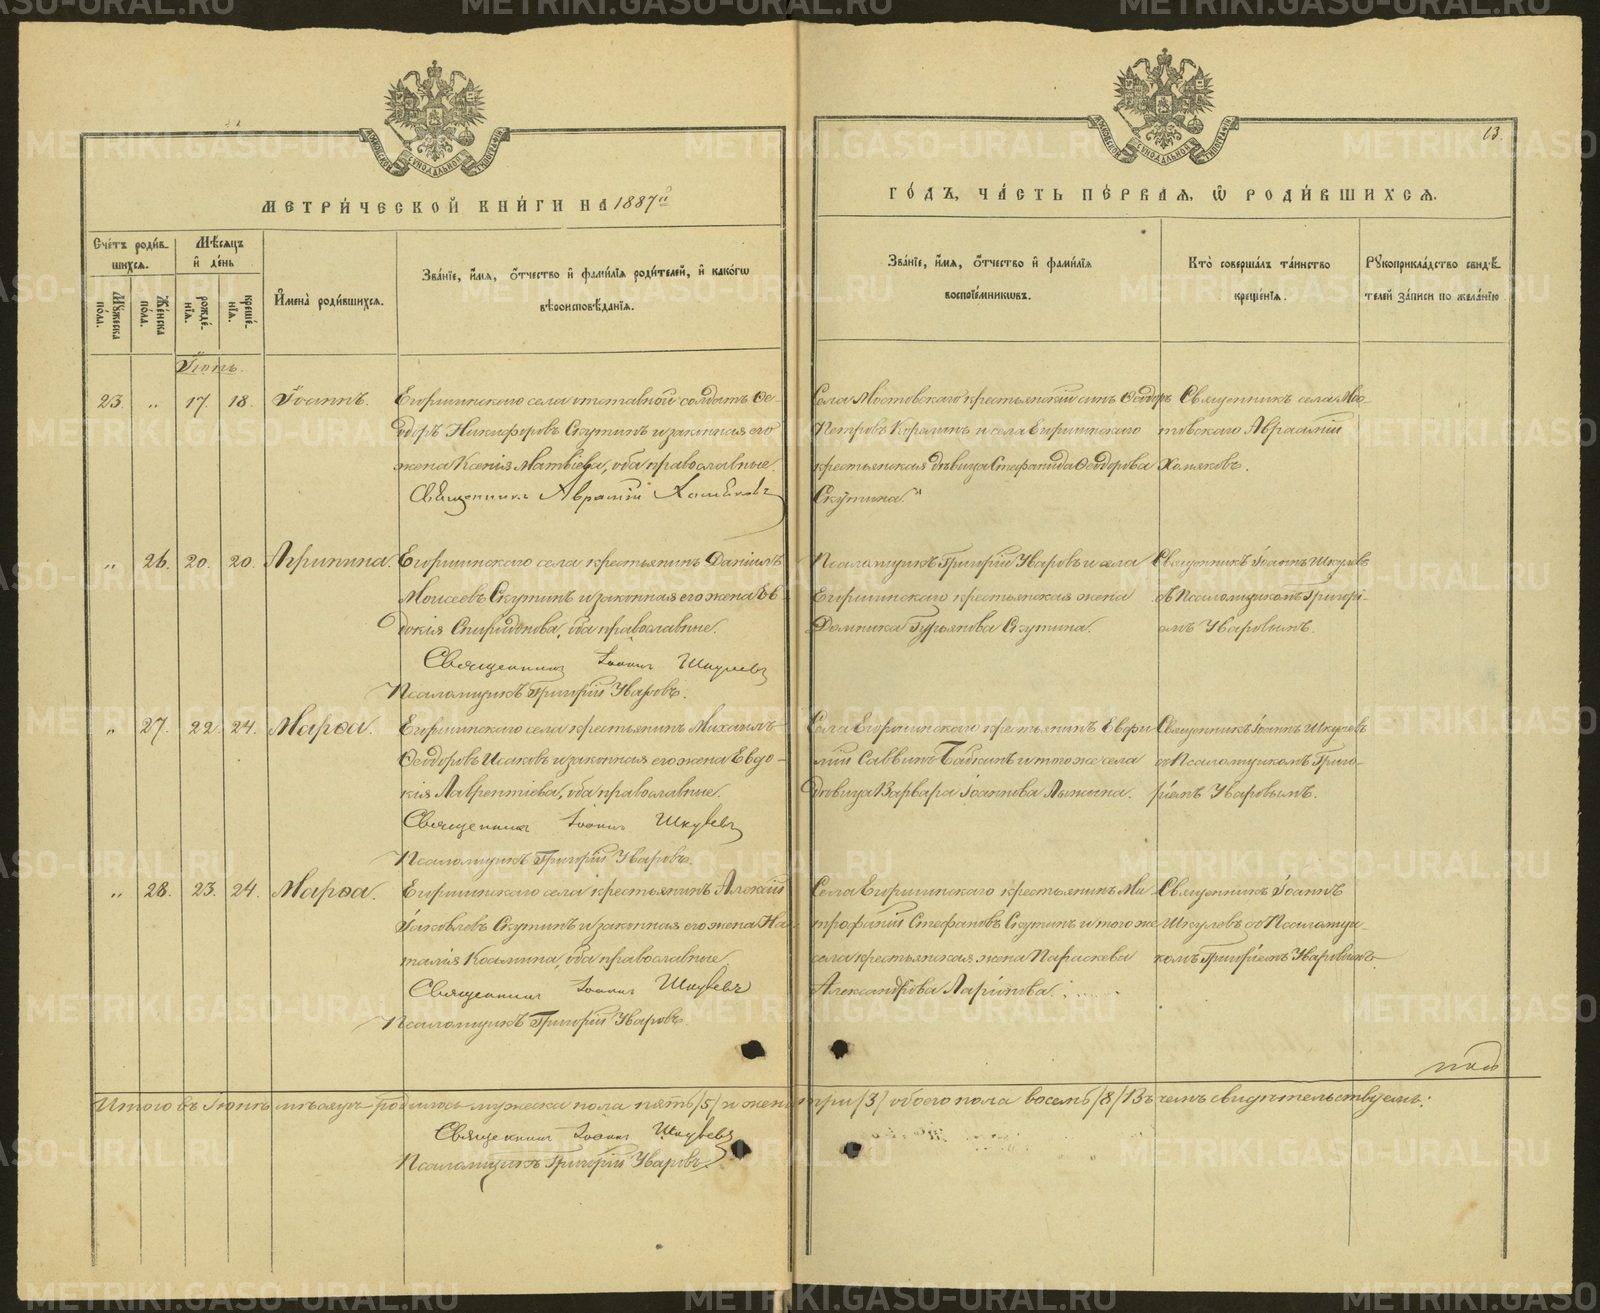 13.
МЕТРИЧЕСКОЙ КНИГИ НА 1887й
ГОДЪ, ЧАСТЬ ПЕРВАЯ, Ѡ РОДИВШИХСЯ.
Счетъ родив-
шихся.
Мужеска
пола.
Женска
пола.
Мѣсяцъ
и день
рожде-
нія.
креще-
нія.
Имена родившихся.
Званіе, имя, отчество и фамилія родителей, и какогѡ
вѣроисповѣданія.
Званіе, имя, отчество и фамилія
воспріемниковъ.
Кто совершалъ таинство
крещенія.
Рукоприкладство свидѣ-
телей записи по желанію
Іюнь.
23. „ 17. 18. Іоаннъ.
Егоршинскаго села отставной солдатъ Ѳе-
одоръ Никифоровъ Скутинъ и законная его
жена Ксенія Матвіева, оба православные.
Священникъ Авраамій Хомяковъ
Села Мостовскаго крестьянскій сынъ Ѳеодоръ
Петровъ Корелинъ и села Егоршинскаго
крестьянская дѣвица Стефанида Ѳеодорова
Скутина
Священникъ села Мос-
товскаго Авраамій
Хомяковъ.
„ 26. 20. 20. Агрипина.
Егоршинскаго села крестьянинъ Даніилъ
Моисеевъ Скутинъ и законная его жена Ев-
докія Спиридонова, оба православные.
Священникъ Іоаннъ Шкулевъ
Псаломщикъ Григорій Уваровъ.
Псаломщикъ Григорій Уваровъ и села
Егоршинскаго крестьянская жена
Домника Гурьянова Скутина.
Священникъ Іоаннъ Шкулевъ
съ Псаломщикомъ Григорі-
емъ Уваровымъ.
„ 27. 22. 24. Марѳа.
Егоршинскаго села крестьянинъ Михаилъ
Ѳеодоровъ Исаковъ и законная его жена Евдо-
кія Лаврентіева, оба православные.
Священникъ Іоаннъ Шкулевъ
Псаломщикъ Григорій Уваровъ.
Села Егоршинскаго крестьянинъ Евфи
мій Саввинъ и тогоже села
дѣвица Варвара Іоаннова
Священникъ Іоаннъ Шкулевъ
съ Псаломщикомъ Григо-
ріемъ Уваровымъ.
„ 28. 23. 24. Марѳа.
Егоршинскаго села крестьянинъ Алексій
Іаковлевъ Скутинъ и законная его жена На-
талія Косьмина, оба православные.
Священникъ Іоаннъ Шкулевъ
Псаломщикъ Григорій Уваровъ.
Села Егоршинскаго крестьянинъ Ми-
трофаній Стефановъ Скутинъ и тогоже
села крестьянская жена Параскева
Александрова Ларіонова.
Священникъ Іоаннъ
Шкулевъ съ Псаломщи-
комъ Григоріемъ Уваровымъ.
Итого въ Іюнѣ мѣсяцѣ родилось мужеска пола пять /5/ и женска три /3/ обоего пола восемь /8/ Въ чемъ свидѣтельствуемъ:
Священникъ Іоаннъ Шкулевъ
Псаломщикъ Григорій Уваровъ
METRIKI.GASO-URAL.RU